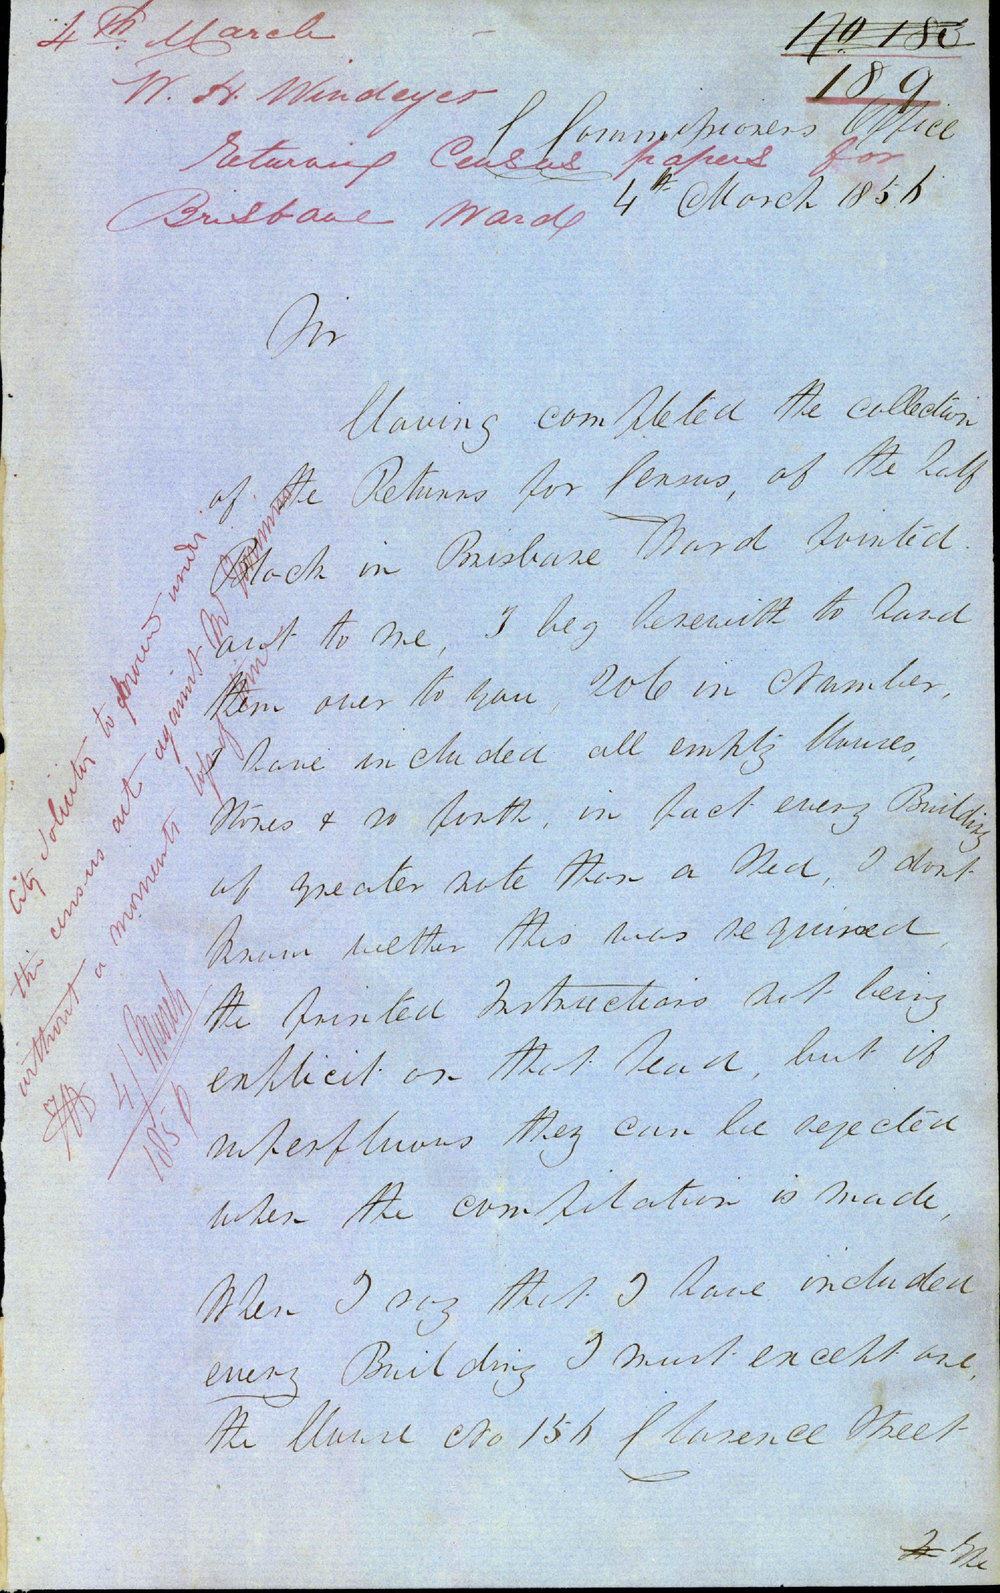 4th March
W. H. Windeyer
Returning Census papers for
Brisbane Ward
170 18
189
Commissioners Office
4th March 1856
Sir
Having completed the collection
of the Returns for Census, of the half
Block in Brisbane Ward pointed
out to me, I beg herewith to hand
them over to you, 206 in Number,
I have included all empty Houses,
Stores & so forth, in fact every Building
of greater note than a Shed, I dont
know wether this was required,
the printed Instructions not being
explicit on that head, but if
superfluous they can be rejected
when the compilation is made,
When I say that I have included
every Building I must except one,
the House No 156 Clarence Street
The
City Solicitor to proceed under
the census act against Mr
without a moments
4/March
1856